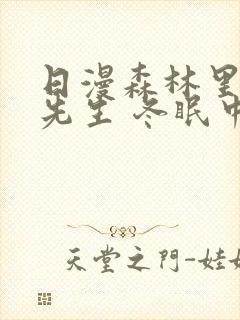 日漫森林里
先生 冬眠中
天堂之門-娃娃